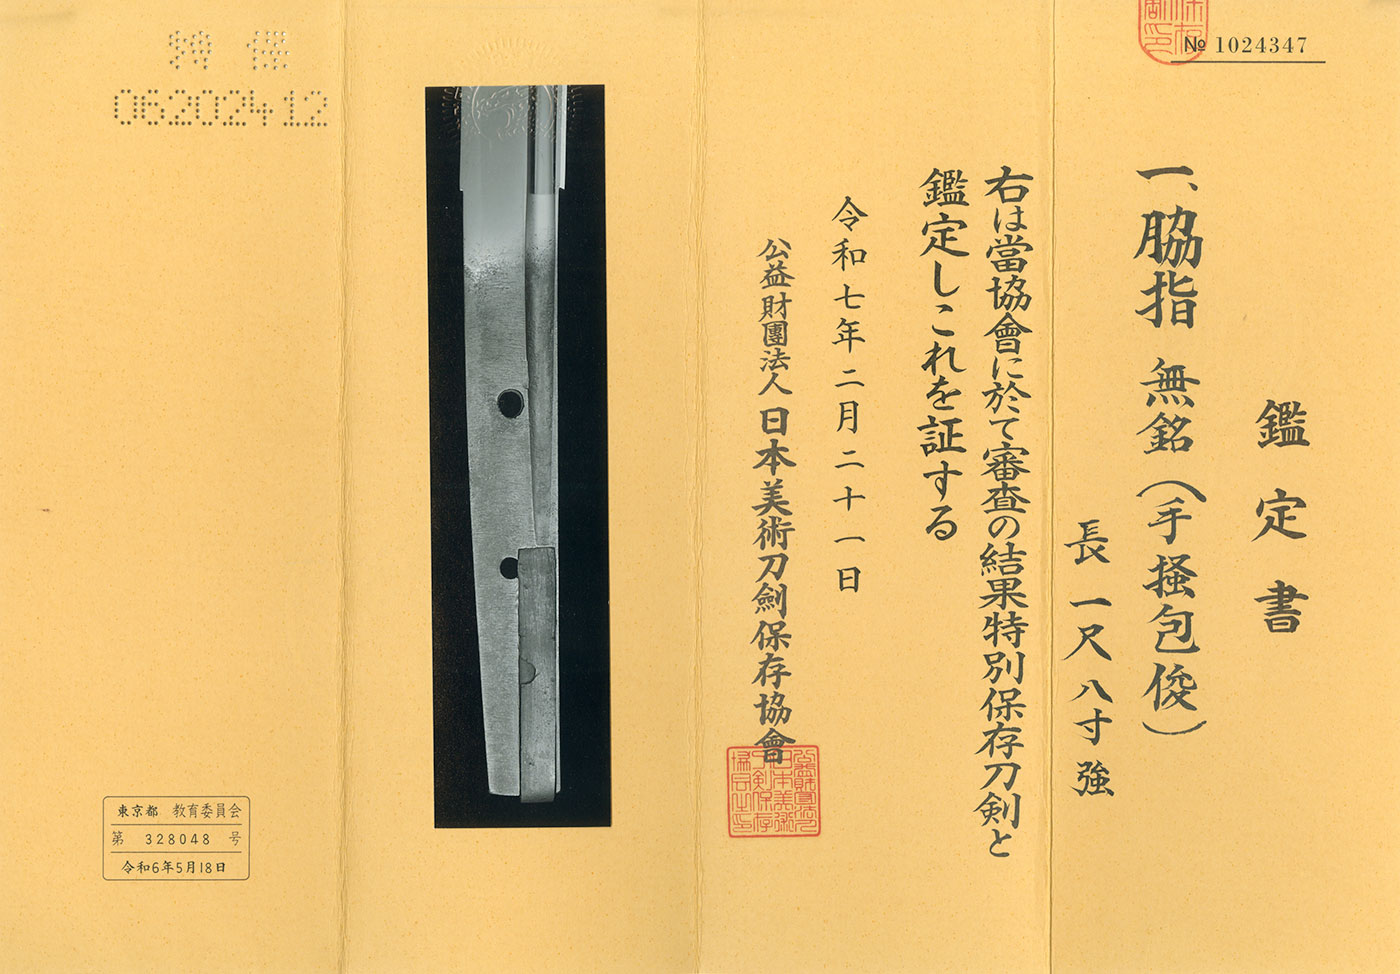 № 1024347
鑑定書
一、脇指 無銘(手掻包俊)
長 一尺八寸強
右は當協會に於て審査の結果特別保存刀剣と
鑑定しこれを証する
令和七年二月二十一日
公益財團法人 日本美術刀劍保存協會
特 保
06202412
東京都 教育委員会
第 328048 号
令和6年5月18日